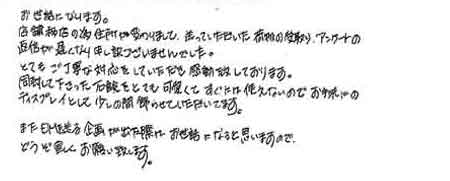 お世話になります。
店舗移店の為住所が変わりまして、送っていただいた荷物の受取り、アンケートの
返信が遅くなり申し訳ございませんでした。
とてもご丁寧な対応をしていただき感動致しております。
同封して下さった石鹸をとても可愛くてすぐには使えないのでお手洗いの
ディスプレイとして少しの間飾らせていただいてます。
また 企画が出た際にはお世話になると思いますので、
どうぞ宜しくお願い致します。